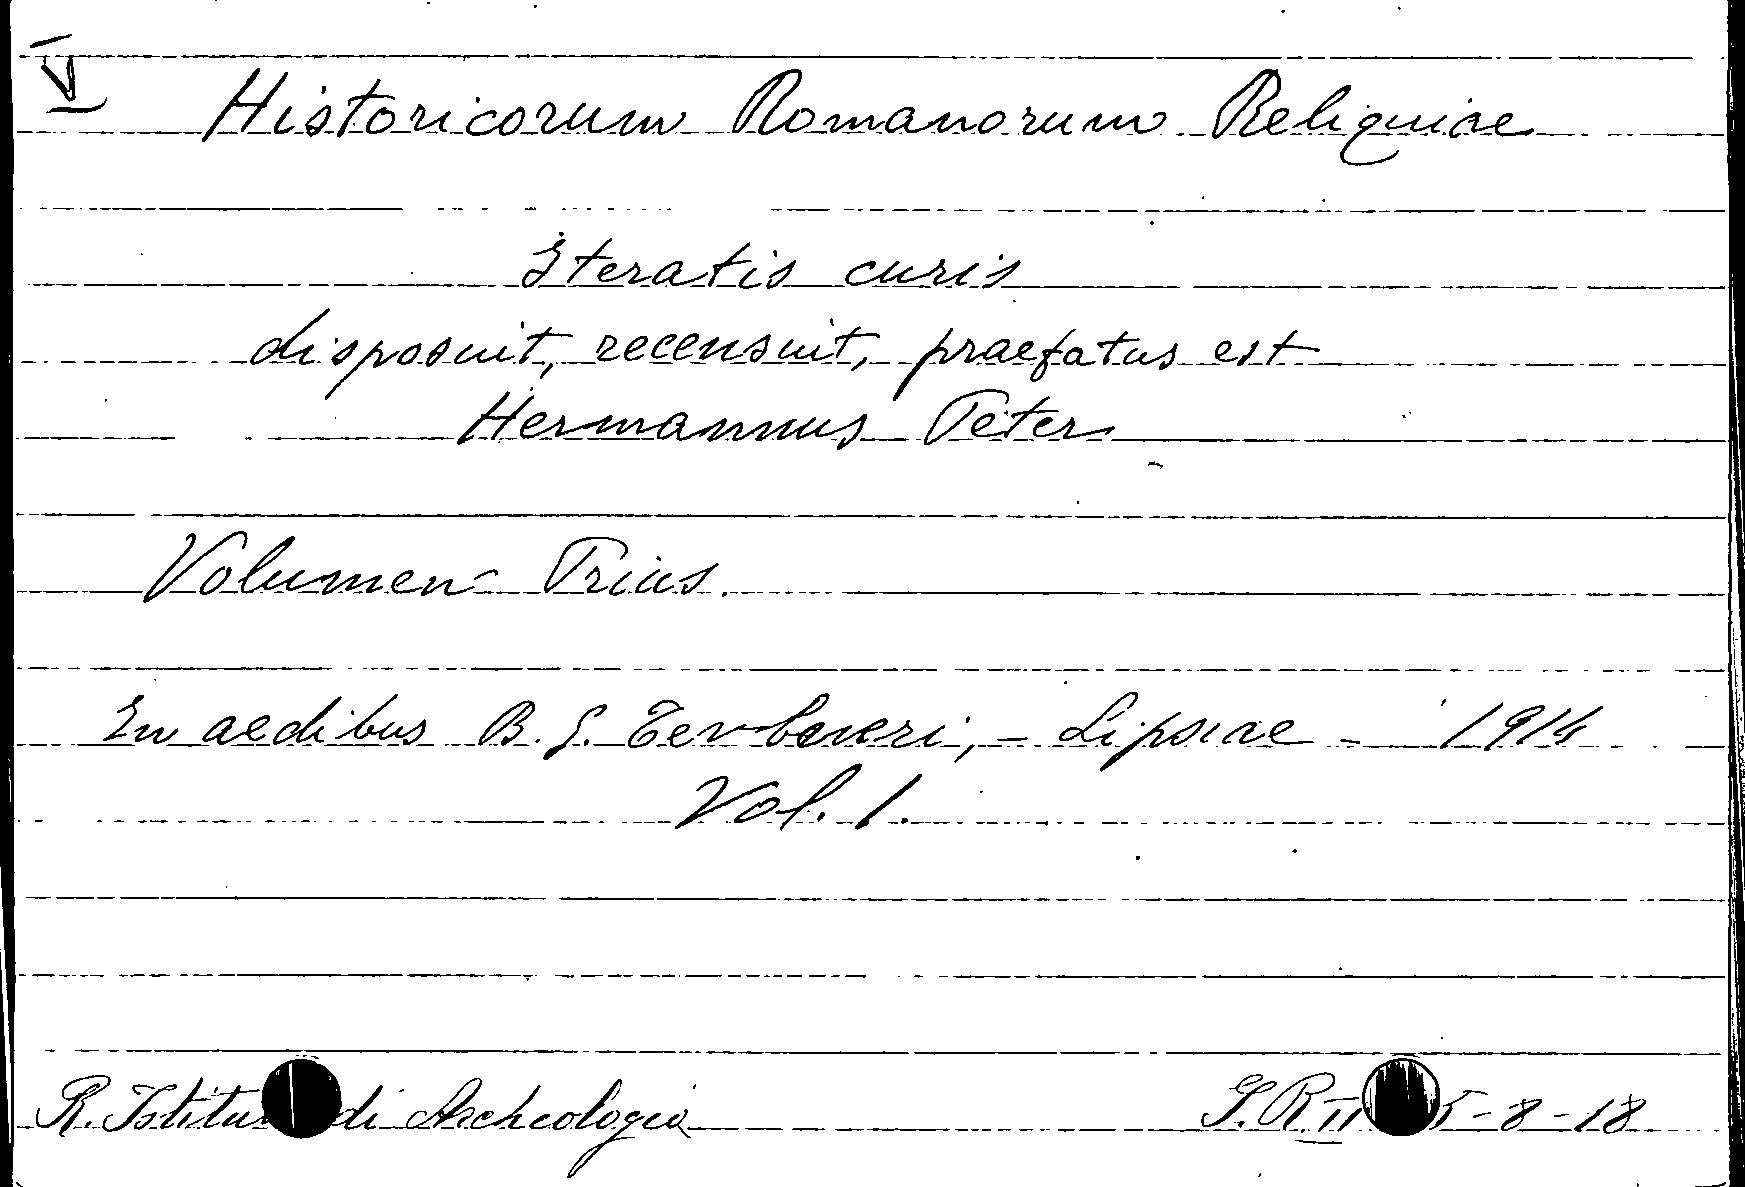 V
Historicorum Romanorum Reliquiae
Iteratis curis
disposuit, recensuit, praefatus est
Hermannus Peter
Volumen Prius.
In aedibus B. G. Tevbneri, - Lipsiae - 1914
Vol. 1.
R. Istitu di Archeologia S. R. II 5-8-18